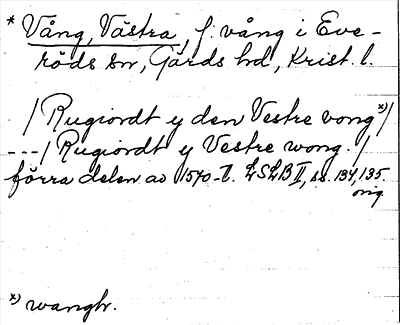 * Vång, Västra, f. vång i Eve-
röds sn, Gärds hd, Krist. l.
/ Rugiordt y den Vestre vong *) /
---/ Rugiordt y Vestre wong. /
förra delen av 1570-t. LSLB II, ss. 134, 135.
orig
*) wangh.